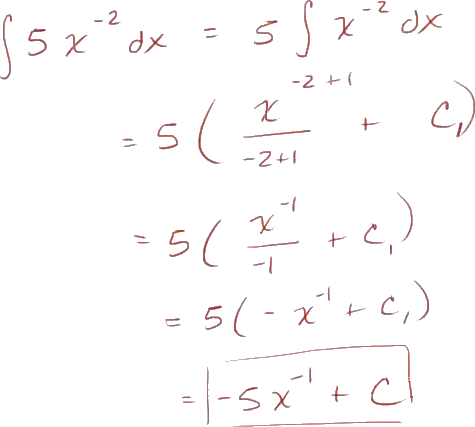 ∫ 5 x⁻² dx = 5 ∫ x⁻² dx
= 5 ( x⁻²⁺¹ / -2+1 + C₁ )
= 5 ( x⁻¹ / -1 + C₁ )
= 5 ( - x⁻¹ + C₁ )
= -5x⁻¹ + C